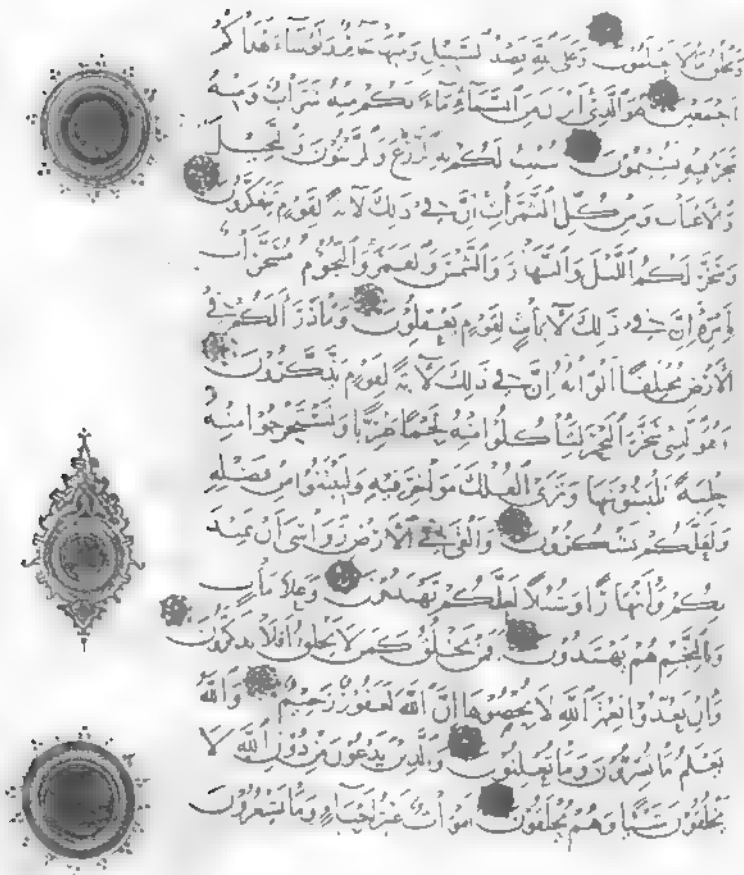 ويخلق ما لا تعلمون وعلى الله قصد السبيل ومنها جائر ولو شاء لهداكم
أجمعين هو الذي أنزل من السماء ماء لكم منه شراب ومنه
شجر فيه تسيمون ينبت لكم به الزرع والزيتون والنخيل
والأعناب ومن كل الثمرات إن في ذلك لآية لقوم يتفكرون
وسخر لكم الليل والنهار والشمس والقمر والنجوم مسخرات
بأمره إن في ذلك لآيات لقوم يعقلون وما ذرأ لكم في
الأرض مختلفا ألوانه إن في ذلك لآية لقوم يذكرون
وهو الذي سخر البحر لتأكلوا منه لحما طريا وتستخرجوا منه
حلية تلبسونها وترى الفلك مواخر فيه ولتبتغوا من فضله
ولعلكم تشكرون وألقى في الأرض رواسي أن تميد
بكم وأنهارا وسبلا لعلكم تهتدون وعلامات
وبالنجم هم يهتدون أفمن يخلق كمن لا يخلق أفلا تذكرون
وإن تعدوا نعمة الله لا تحصوها إن الله لغفور رحيم والله
يعلم ما تسرون وما تعلنون والذين يدعون من دون الله لا
يخلقون شيئا وهم يخلقون أموات غير أحياء وما يشعرون